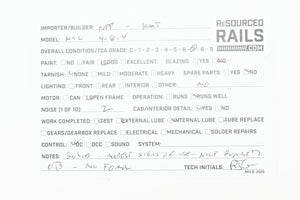 IMPORTER/BUILDER NJ - KMT
RESOURCED
RAILS
.COM
MODEL: NYC 4-8-4
OVERALL CONDITION/TCA GRADE: C-1-2-3-4-5-6-7-8-9
PAINT: NO FAIR GOOD EXCELLENT GLAZING: YES NO
TARNISH: NONE MILD MODERATE HEAVY SPARE PARTS: YES NO
LIGHTING: FRONT REAR INTERIOR OTHER: NO
MOTOR: CAN OPEN FRAME OPERATION: RUNS RUNS WELL
NOISE (1 OF 10) 2 CAB/INTERIOR DETAIL: YES NO
WORK COMPLETED: TEST EXTERNAL LUBE INTERNAL LUBE TUBE REPLACE
GEARS/GEARBOX REPLACE ELECTRICAL MECHANICAL SOLDER REPAIRS
CONTROL: DC DCC SOUND SYSTEM:
NOTES: SOUND - MODEST SIGNS OF USE - NICE RUNNER
OB - NO FOAM TECH INITIALS: